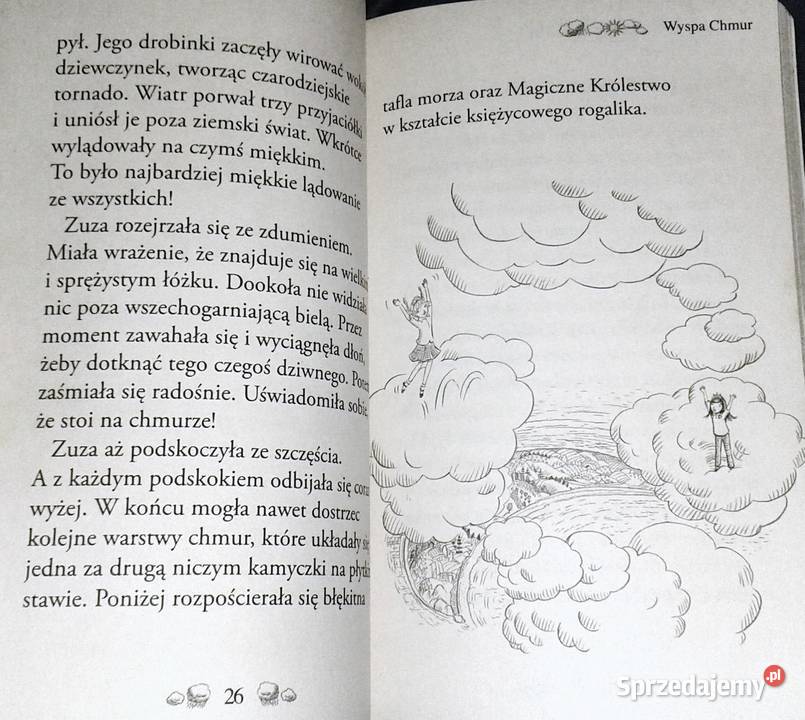 pył. Jego drobinki zaczęły wirować wokół
dziewczynek, tworząc czarodziejskie
tornado. Wiatr porwał trzy przyjaciółki
i uniósł je poza ziemski świat. Wkrótce
wylądowały na czymś miękkim.
To było najbardziej miękkie lądowanie
ze wszystkich!
Zuza rozejrzała się ze zdumieniem.
Miała wrażenie, że znajduje się na wielkim
i sprężystym łóżku. Dookoła nie widziała
nic poza wszechogarniającą bielą. Przez
moment zawahała się i wyciągnęła dłoń,
żeby dotknąć tego czegoś dziwnego. Potem
zaśmiała się radośnie. Uświadomiła sobie,
że stoi na chmurze!
Zuza aż podskoczyła ze szczęścia.
A z każdym podskokiem odbijała się coraz
wyżej. W końcu mogła nawet dostrzec
kolejne warstwy chmur, które układały się
jedna za drugą niczym kamyczki na płytkim
stawie. Poniżej rozpościerała się błękitna
26
Wyspa Chmur
tafla morza oraz Magiczne Królestwo
w kształcie księżycowego rogalika.
Sprzedajemy.pl